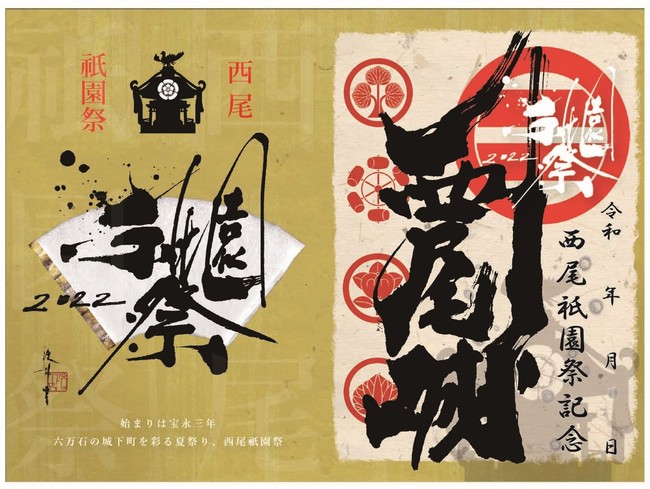 西尾
祇園祭
祇園祭
2022
始まりは宝永三年
六万石の城下町を彩る夏祭り、西尾祇園祭
西尾城
祇園祭
2022
令和 年 月 日
西尾祇園祭記念